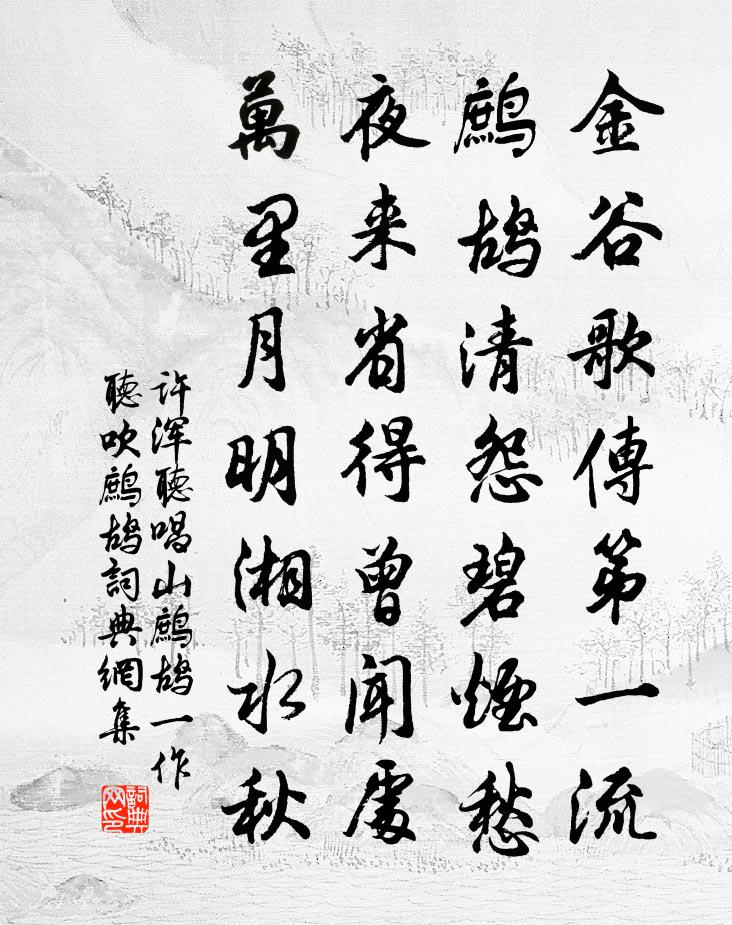 金谷歌傳第一流
鷓鴣清怨碧煙愁
夜来省得曾聞處
萬里月明湘水秋
许渾聽唱山鷓鴣一作
聽吹鷓鴣詞典網集
詞典网印